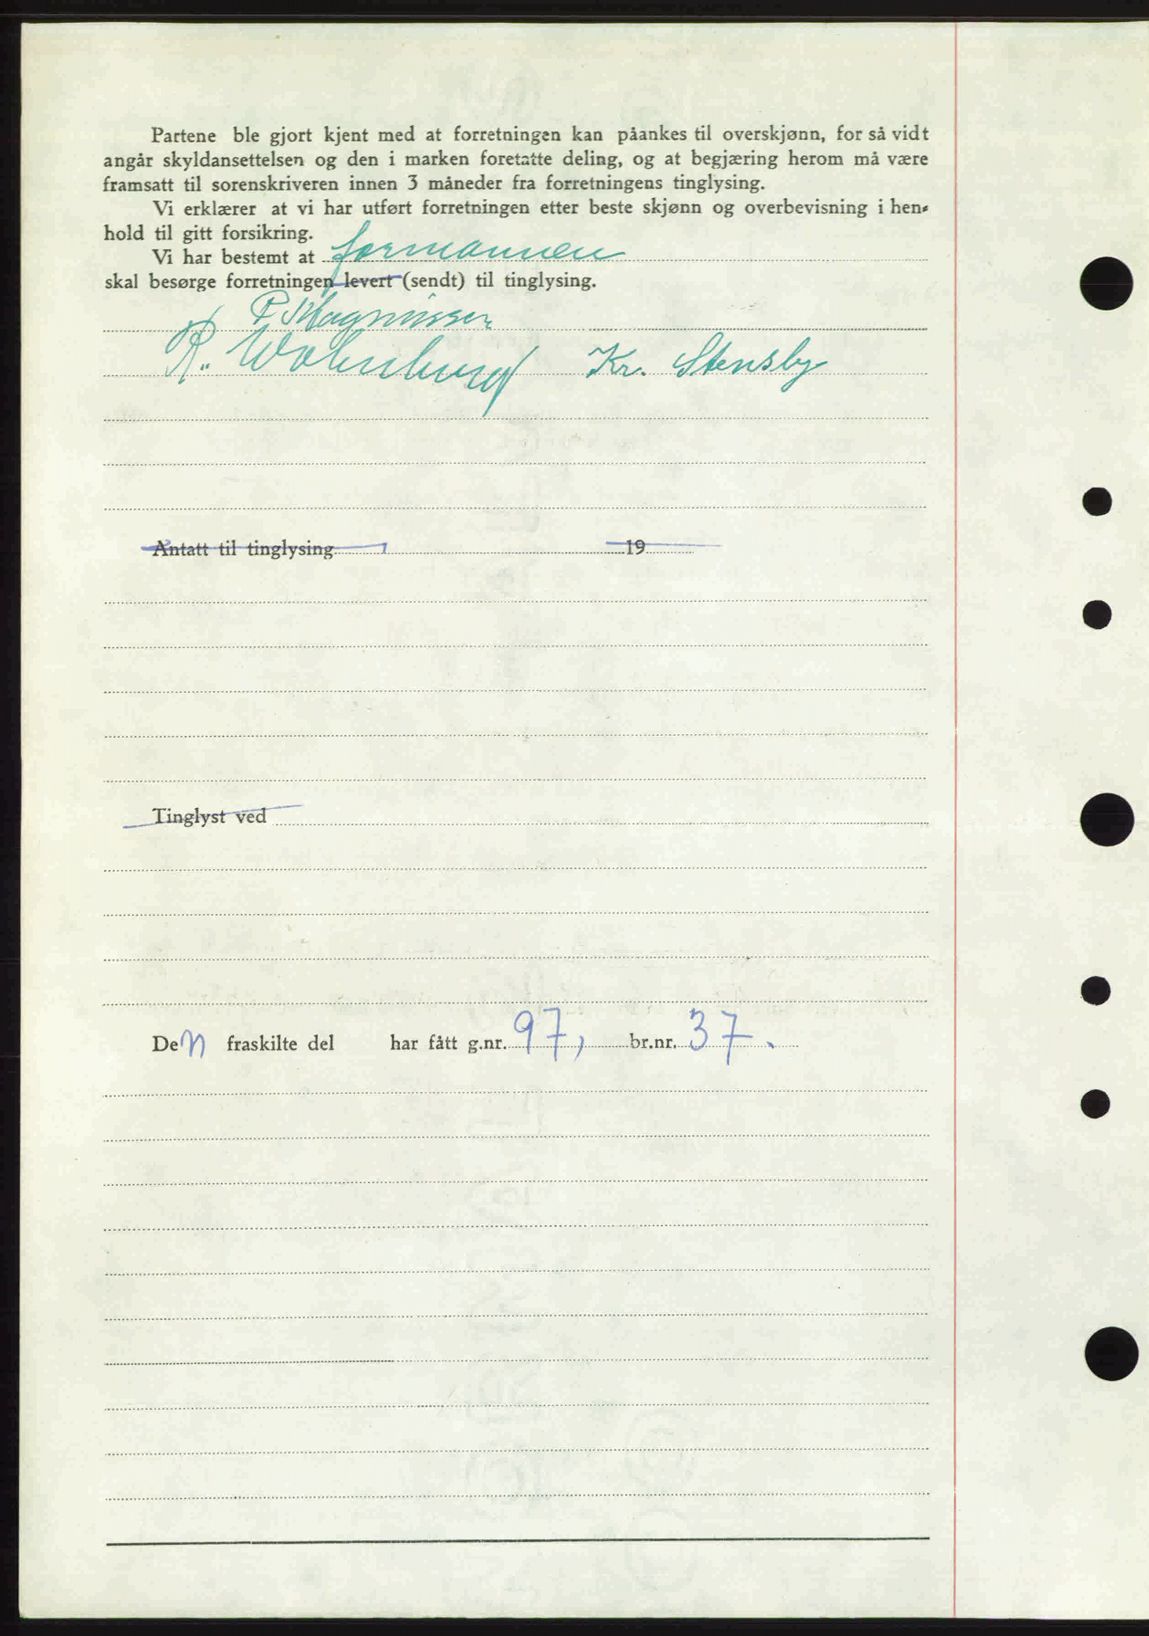 Partene ble gjort kjent med at forretningen kan påankes til overskjønn, for så vidt
angår skyldansettelsen og den i marken foretatte deling, og at begjæring herom må være
framsatt til sorenskriveren innen 3 måneder fra forretningens tinglysing.
Vi erklærer at vi har utført forretningen etter beste skjønn og overbevisning i hen-
hold til gitt forsikring.
Vi har bestemt at formannen
skal besørge forretningen levert (sendt) til tinglysing.
P. Magnussen
R. Kr. Stensby
Antatt til tinglysing 19
Tinglyst ved
Den fraskilte del har fått g.nr. 97, br.nr. 37.